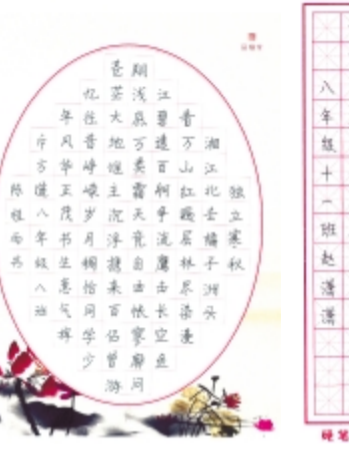 独立寒秋
湘江北去橘子洲头
看万山红遍层林尽染漫
江碧透百舸争流鹰击长空鱼
翔浅底万类霜天竞自由怅寥廓问
苍茫大地谁主沉浮携来百侣曾游
忆往昔峥嵘岁月稠恰同学少
年风华正茂书生意气挥
斥方遒八年级八班
陈书
八年级十一班赵潇潇
硬笔